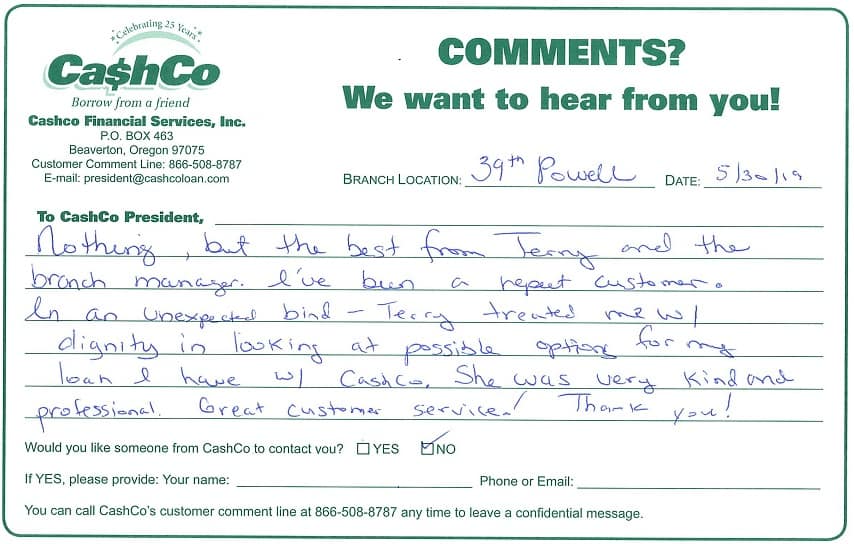 Celebrating 25 Years
Ca$hCo
Borrow from a friend
Cashco Financial Services, Inc.
P.O. BOX 463
Beaverton, Oregon 97075
Customer Comment Line: 866-508-8787
E-mail: president@cashcoloan.com
COMMENTS?
We want to hear from you!
BRANCH LOCATION: 39th Powell DATE: 5/30/19
To CashCo President,
Nothing, but the best from Terry and the
branch manager. I've been a repeat customer.
In an unexpected bind - Terry treated me w/
dignity in looking at possible options for my
loan I have w/ CashCo. She was very kind and
professional. Great customer service! Thank you!
Would you like someone from CashCo to contact you? YES NO
If YES, please provide: Your name: Phone or Email:
You can call CashCo's customer comment line at 866-508-8787 any time to leave a confidential message.